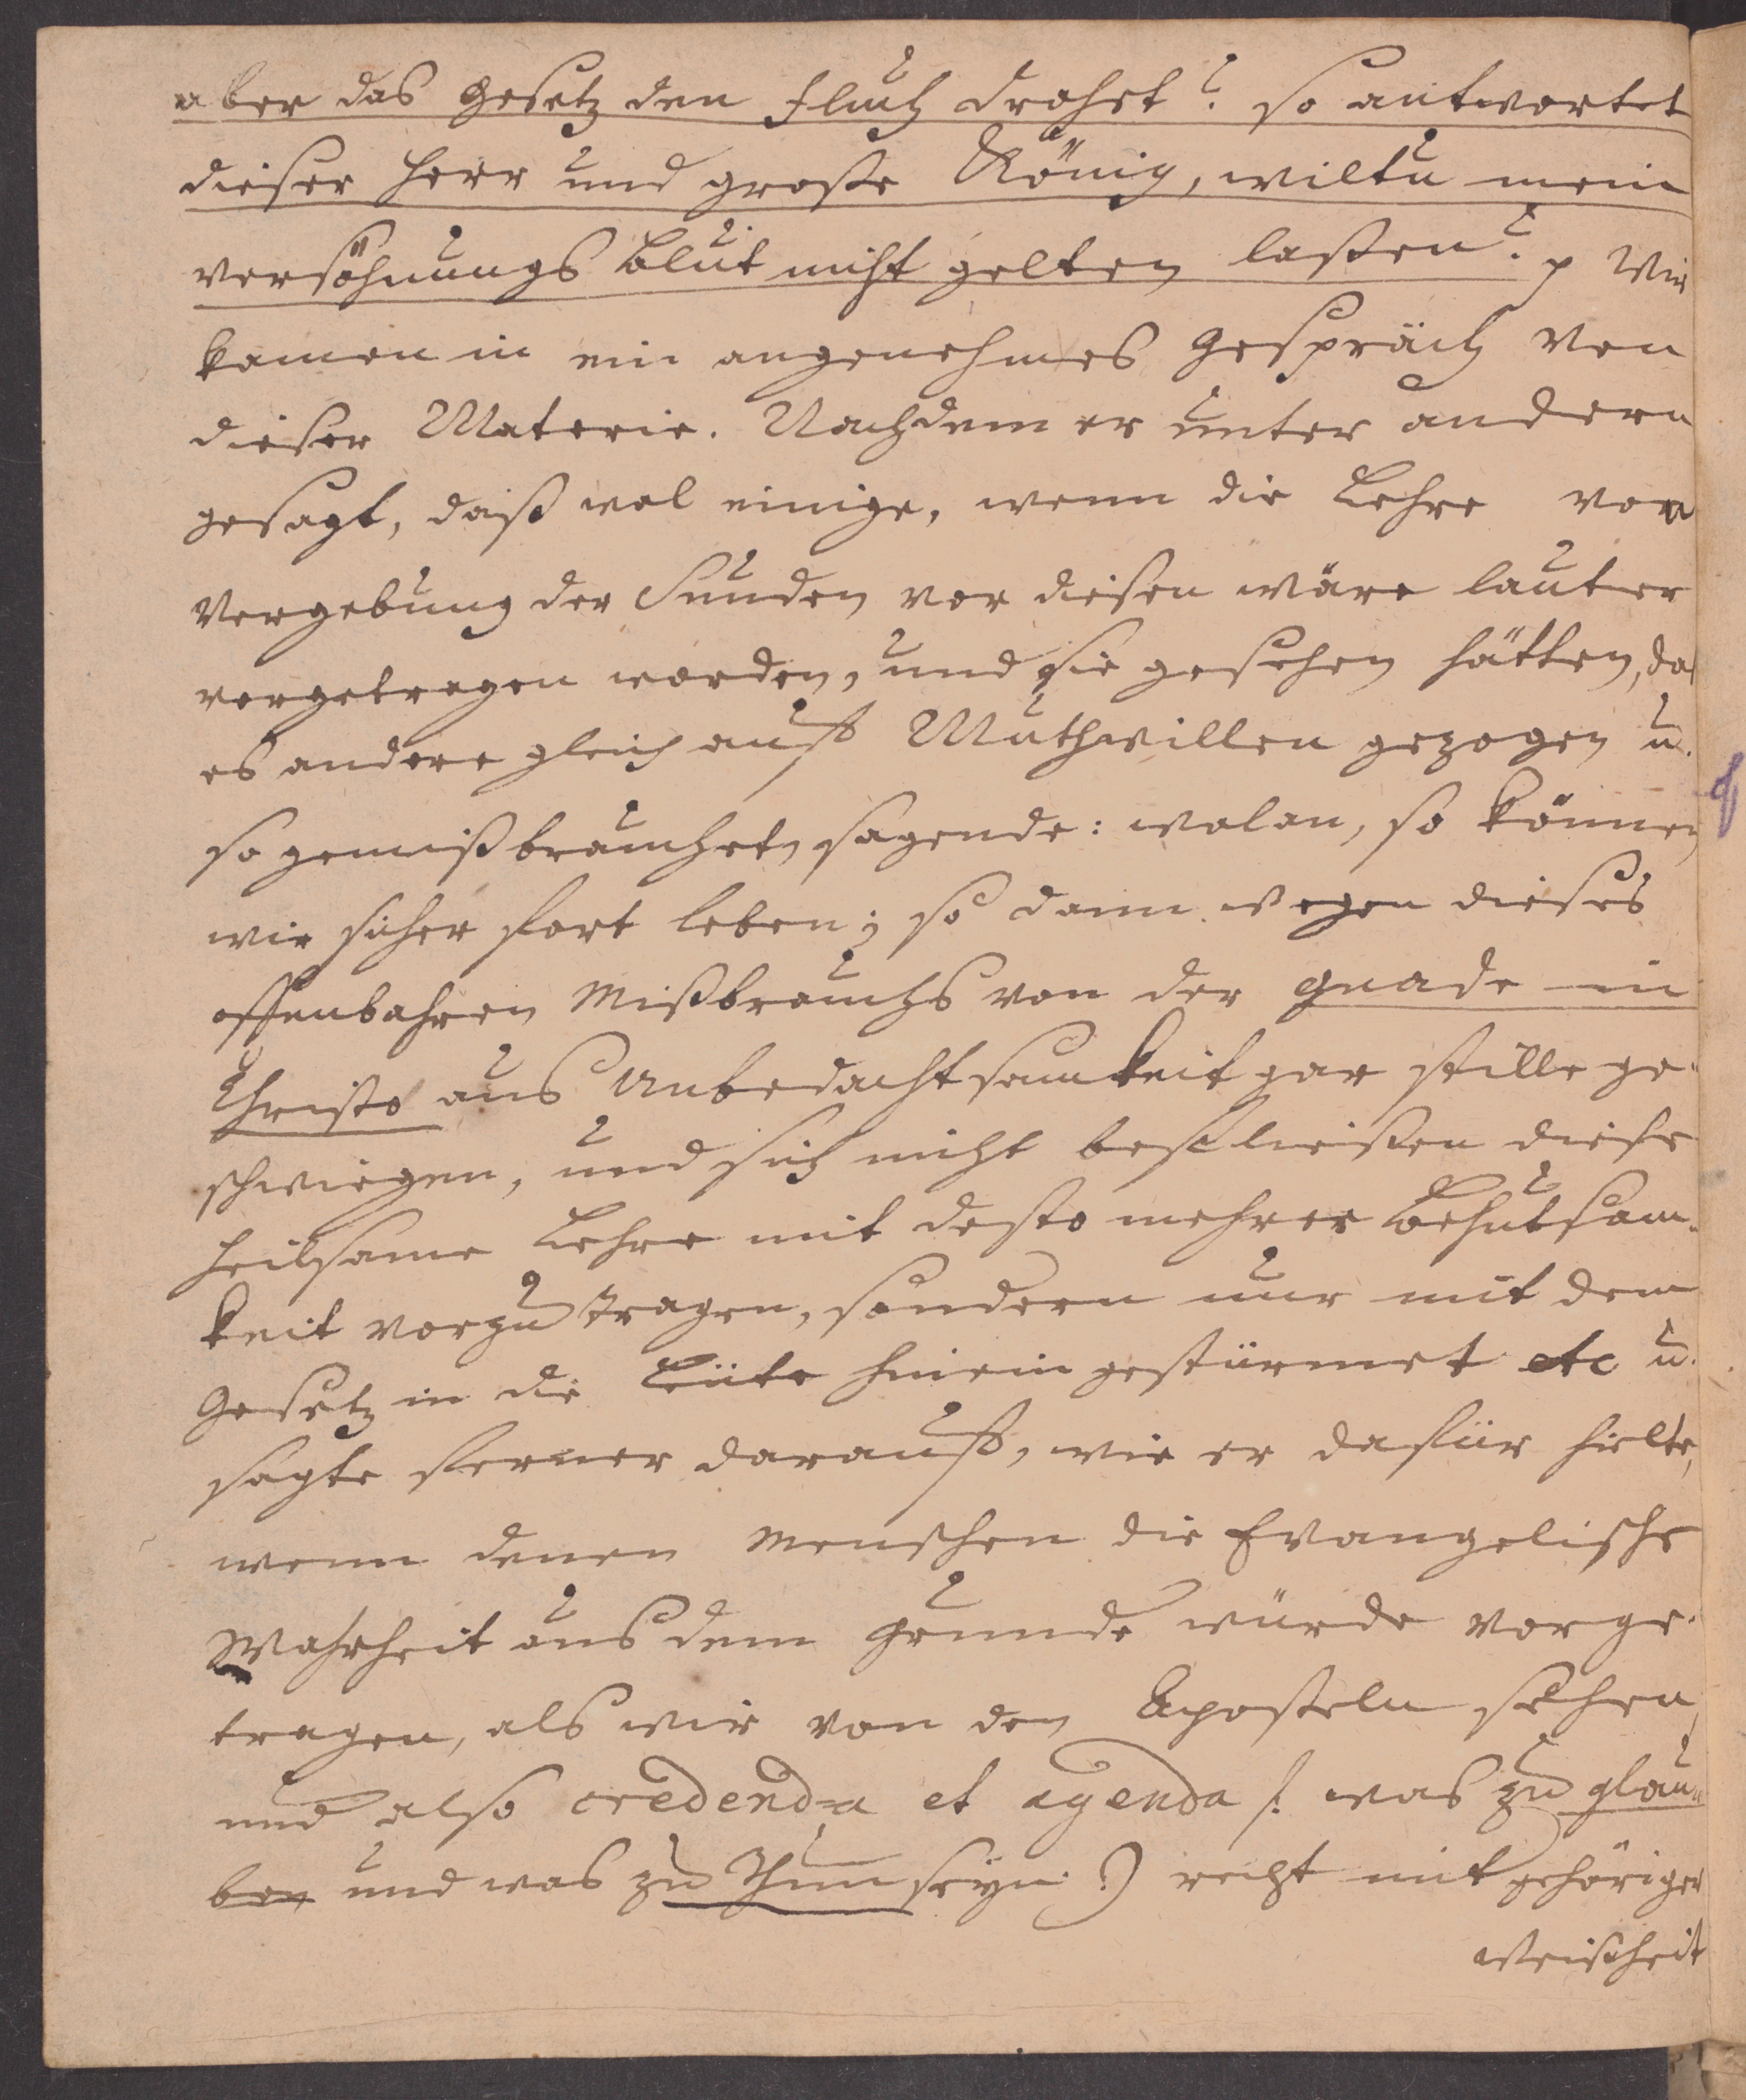 aber das Gesetz den Fluch drohet? so antwortet
dieser Herr und große König, wiltu mein
versöhnungs Blut nicht gelten laßen? p Wir
kamen in ein angenehmes Gespräch von
dieser Materie. Nachdem er unter andern
gesagt, daß wol einige, wenn die Lehre von
Vergebung der Sünden vor diesen wäre lauter
vorgetragen worden, und sie gesehen hätten, daß
es andere gleich auff Muthwillen gezogen u.
so gemißbrauchet, sagende: wolan, so können
wir sicher fort leben; so dann wegen dieses
offenbahren Mißbrauchs von der Gnade in
Christo aus Unbedachtsamkeit gar stille ge-
schwiegen, und sich nicht befleißen diese
heilsame Lehre mit desto mehrer Behutsam-
keit vorzutragen, sondern nur mit dem
Gesetz in die Leüte hinein gestürmet etc u.
sagte ferner darauff, wie er dafür hielte,
wenn denen Menschen die Evangelische
Wahrheit aus dem Grunde würde vorge-
tragen, als wir von den Aposteln sehen,
und also credenda et agenda (: was zu glau-
ben und was zu Thun seyn :) recht mit gehöriger
Weißheit